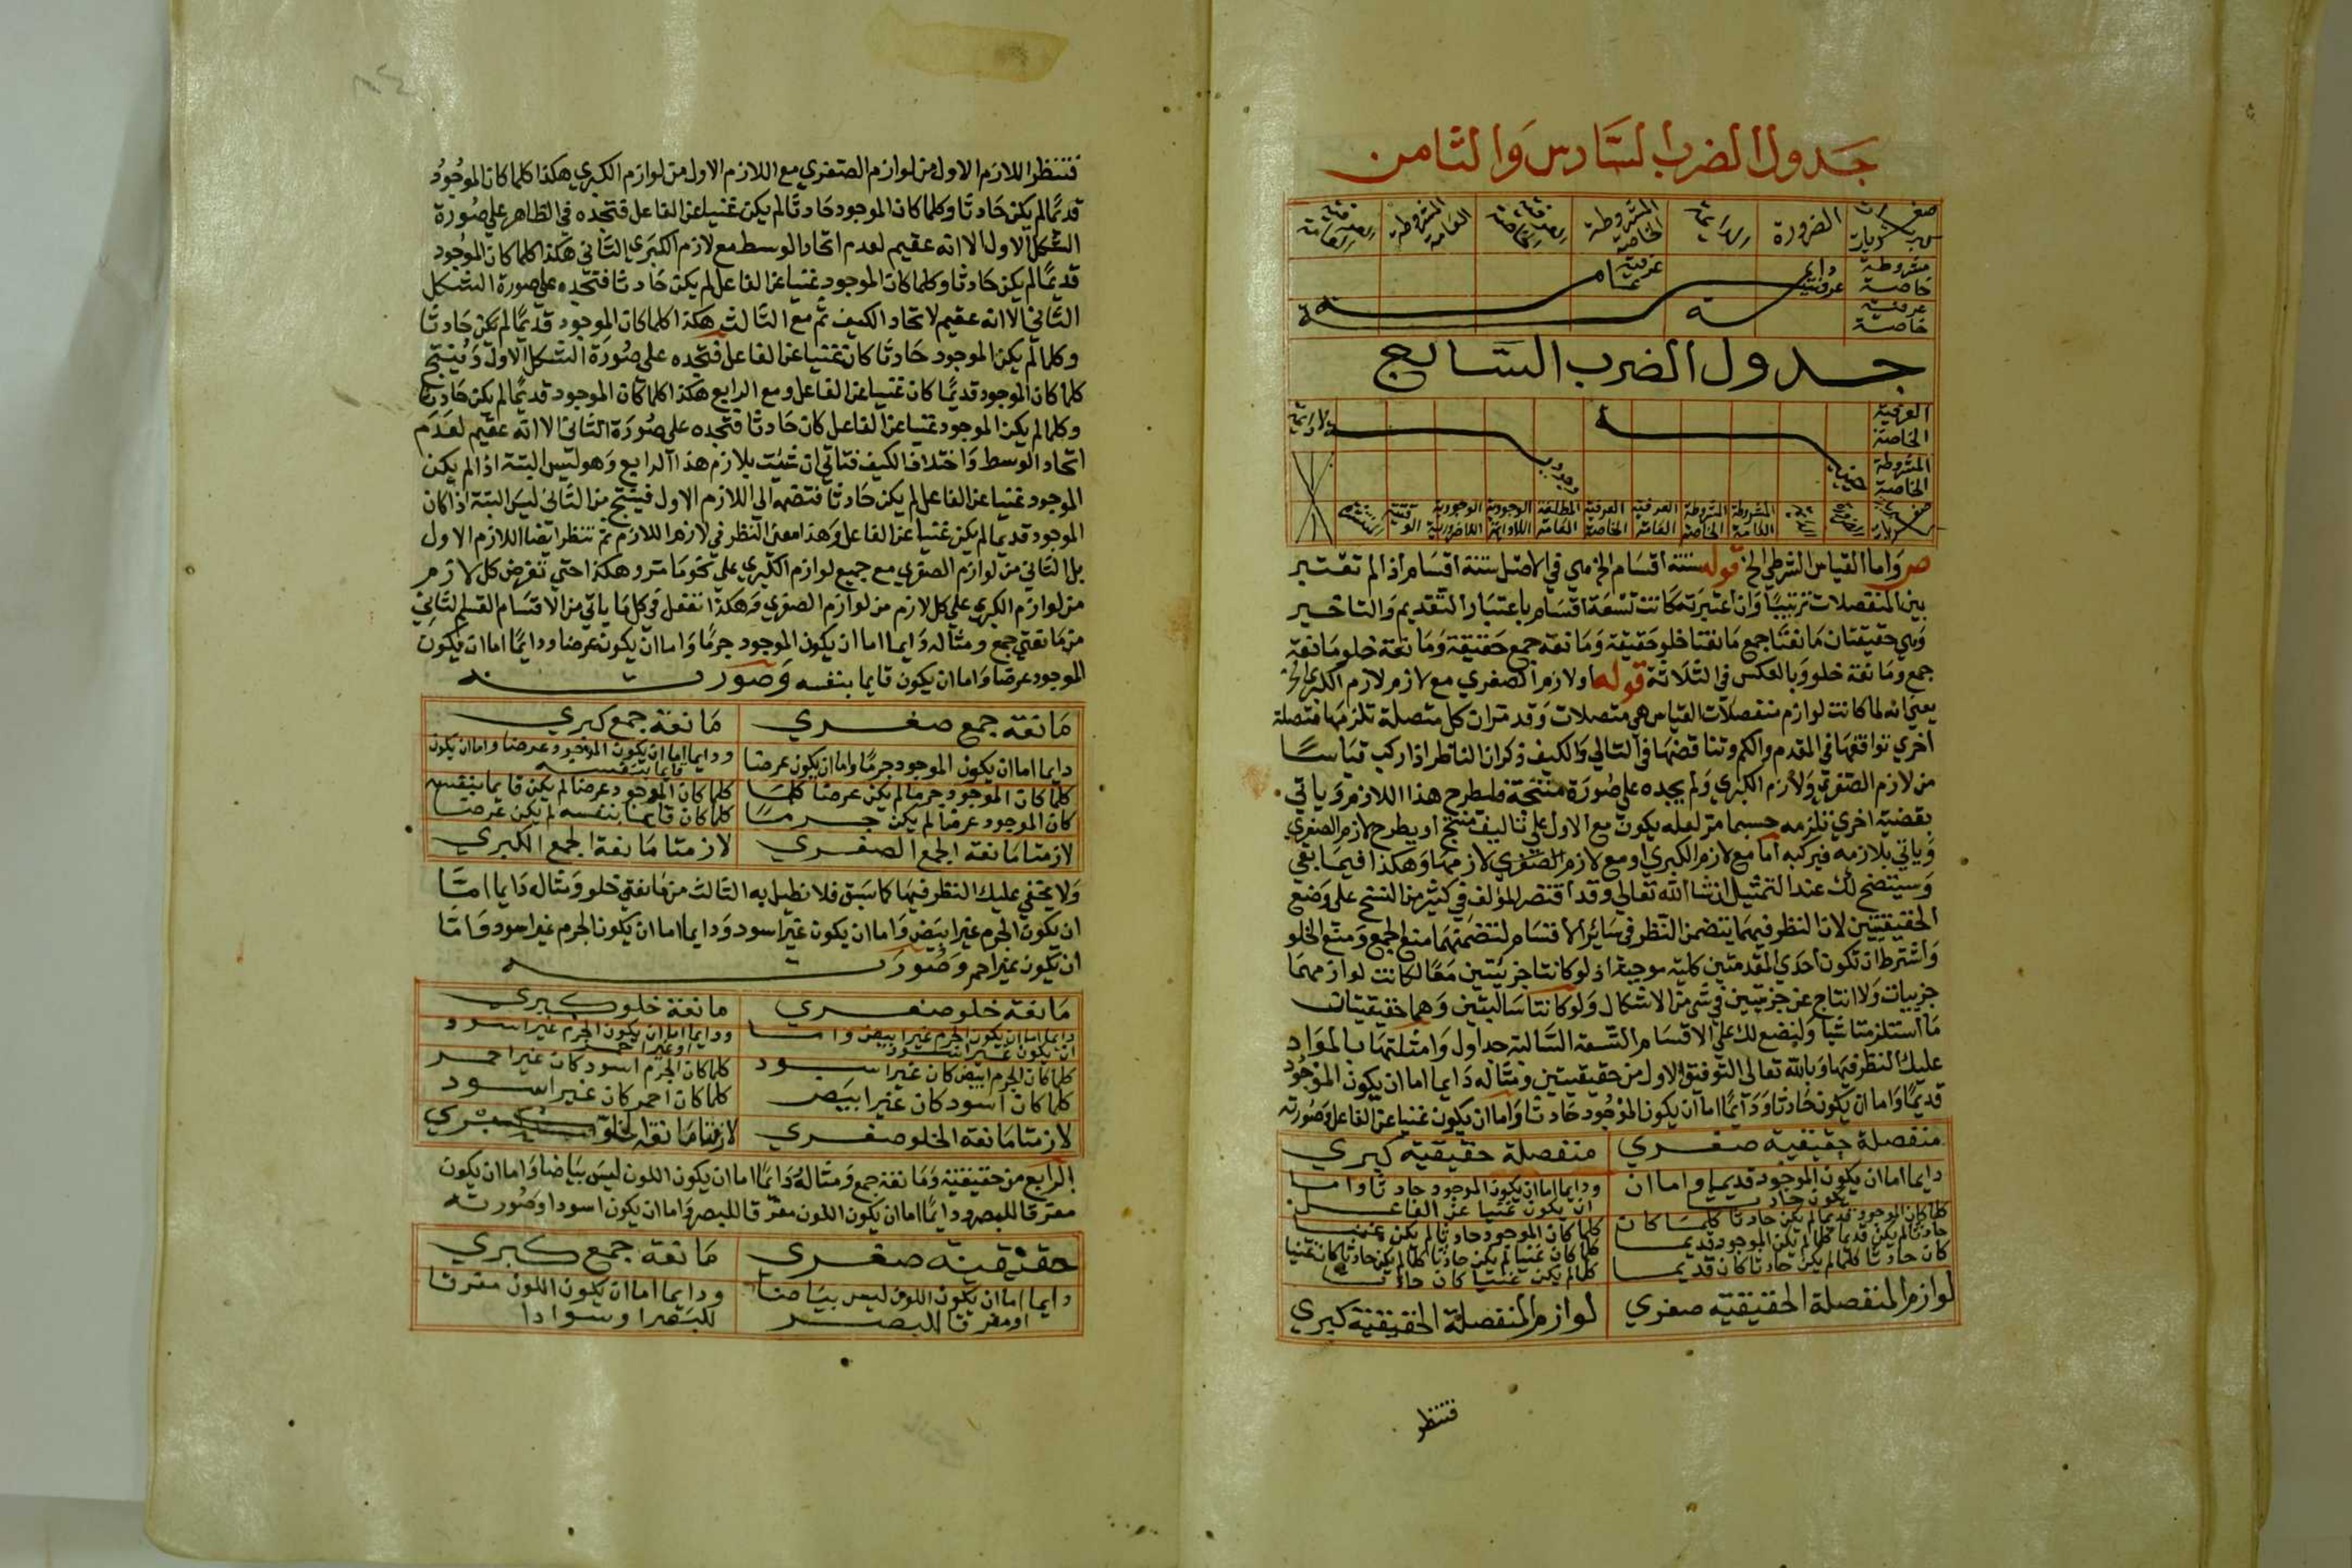 جدول الضرب السادس والثامن
صغريات كبريات الضرورة الدائمة المشروطة الخاصة العرفية الخاصة المشروطة العامة العرفية العامة
مشروطة خاصة دايم عرفية عرفية عامة
عرفية خاصة
جدول الضرب السابع
العرفية الخاصة لا دايمة
المشروطة الخاصة
المشروطة العامة المشروطة الخاصة العرفية العامة العرفية الخاصة المطلقة العامة الوجودية اللادايمة الوجودية اللاضرورية الوقتية
ص واما القياس الشرطي الخ قوله ستة اقسام الخ هي في الاصل ستة اقسام اذا لم تعتبر
بين المنفصلات ترتيبا وان اعتبرته كانت تسعة اقسام باعتبار التقديم والتاخير
وهي حقيقتان مانعتا جمع مانعتا خلو حقيقة ومانعة جمع حقيقة ومانعة خلو مانعة
جمع ومانعة خلو وبالعكس في الثلاثة قوله ولازم الصغري مع لازم لازم الكبري الخ
يعني انه لما كانت لوازم منفصلات القياس هي متصلات وقد مر ان كل متصلة تلزمها متصلة
اخري توافقها في المقدم والكم وتناقضها في التالي والكيف ذكر ان الناظر اذا ركب قياسا
من لازم الصغري ولازم الكبري ولم يجده علي صورة منتجة فليطرح هذا اللازم وياتي
بقضية اخري تلزمه حسبما مر لعله يكون مع الاول علي تاليف منتج او يطرح لازم الصغري
وياتي بلازمه فيركبه اما مع لازم الكبري او مع لازم الصغري لازمها وهكذا فيما بقي
وسيتضح لك عند التمثيل ان شا الله تعالي وقد اقتصر المؤلف في كثير من النسخ علي وضع
الحقيقيتين لان النظر فيهما يتضمن النظر في سائر الاقسام لتضمنهما منع الجمع ومنع الخلو
واشترط ان تكون احدي المقدمتين كلية موجبة اذ لو كانتا جزئيتين معا لكانت لوازمهما
جزييات ولا انتاج عن جزييتين في شي من الاشكال ولو كانتا سالبتين وهما حقيقيتان
ما استلزمتا شيا ولنضع لك علي الاقسام التسعة السالبة جداول وامثلتها بالمواد
عليك النظر فيها وبالله تعالي التوفيق الاول من حقيقيتين ومثاله دايما اما ان يكون الموجود
قديما واما ان يكون حادثا ودايما اما ان يكون الموجود حادثا واما ان يكون غنيا عن الفاعل وصورته
منفصلة حقيقية صغري منفصلة حقيقية كبري
دايما اما ان يكون الموجود قديما واما ان يكون حادثا ودايما اما ان يكون الموجود حادثا واما ان يكون غنيا عن الفاعل
كلما كان الموجود قديما لم يكن حادثا كلما كان كلما كان الموجود حادثا لم يكن غنيا
حادثا لم يكن قديما كلما لم يكن الموجود قديما كلما كان غنيا لم يكن حادثا كلما لم يكن حادثا كان غنيا
كان حادثا كلما لم يكن حادثا كان قديما كلما لم يكن غنيا كان حادثا
لوازم المنفصلة الحقيقية صغري لوازم المنفصلة الحقيقية كبري
فتنظر
فتنظر اللازم الاول من لوازم الصغري مع اللازم الاول من لوازم الكبري هكذا كلما كان الموجود
قديما لم يكن حادثا وكلما كان الموجود حادثا لم يكن غنيا عن الفاعل فتجده في الظاهر علي صورة
الشكل الاول الا انه عقيم لعدم اتحاد الوسط مع لازم الكبري الثاني هكذا كلما كان الموجود
قديما لم يكن حادثا وكلما كان الموجود غنيا عن الفاعل لم يكن حادثا فتجده علي صورة الشكل
الثاني الا انه عقيم لاتحاد الكيف ثم مع الثالث هكذا كلما كان الموجود قديما لم يكن حادثا
وكلما لم يكن الموجود حادثا كان غنيا عن الفاعل فتجده علي صورة الشكل الاول وينتج
كلما كان الموجود قديما كان غنيا عن الفاعل ومع الرابع هكذا كلما كان الموجود قديما لم يكن حادثا
وكلما لم يكن الموجود غنيا عن الفاعل كان حادثا فتجده علي صورة الثاني الا انه عقيم لعدم
اتحاد الوسط واختلاف الكيف فتاتي ان شئت بلازم هذا الرابع وهو ليس البتة اذا لم يكن
الموجود غنيا عن الفاعل لم يكن حادثا فتضمه الي اللازم الاول فينتج من الثاني ليس البتة اذا كان
الموجود قديما لم يكن غنيا عن الفاعل وهذا معني النظر في لازم اللازم ثم تنظر ايضا اللازم الاول
بل الثاني من لوازم الصغري مع جميع لوازم الكبري علي نحو ما مر وهكذا حتي تفرض كل لازم
من لوازم الكبري علي كل لازم من لوازم الصغري وهكذا تفعل في كل ما ياتي من الاقسام القسم الثاني
من مانعتي جمع ومثاله دايما اما ان يكون الموجود جرما واما ان يكون عرضا ودايما اما ان يكون
الموجود عرضا واما ان يكون قايما بنفسه وصورته
مانعة جمع صغري مانعة جمع كبري
دايما اما ان يكون الموجود جرما واما ان يكون عرضا ودايما اما ان يكون الموجود عرضا واما ان يكون قايما بنفسه
كلما كان الموجود جرما لم يكن عرضا كلما كلما كان الموجود عرضا لم يكن قايما بنفسه
كان الموجود عرضا لم يكن جرما كلما كان قايما بنفسه لم يكن عرضا
لازمتا مانعة الجمع الصغري لازمتا مانعة الجمع الكبري
ولا يخفي عليك النظر فيها كما سبق فلا نطيل به الثالث من مانعتي خلو ومثاله دايما اما
ان يكون الجرم غير ابيض واما ان يكون غير اسود ودايما اما ان يكون الجرم غير اسود واما
ان يكون غير احمر وصورته
مانعة خلو صغري مانعة خلو كبري
دايما اما ان يكون الجرم غير ابيض واما ان يكون غير اسود ودايما اما ان يكون الجرم غير اسود او غير احمر
كلما كان الجرم ابيض كان غير اسود كلما كان الجرم اسود كان غير احمر
كلما كان اسود كان غير ابيض كلما كان احمر كان غير اسود
لازمتا مانعة الخلو صغري لازمتا مانعة الخلو كبري
الرابع من حقيقية ومانعة جمع ومثاله دايما اما ان يكون اللون ليس بياضا واما ان يكون
مفرقا للبصر ودايما اما ان يكون اللون مفرقا للبصر واما ان يكون اسودا وصورته
حقيقية صغري مانعة جمع كبري
دايما اما ان يكون اللون ليس بياضا او مفرقا للبصر ودايما اما ان يكون اللون مفرقا للبصر او سوادا